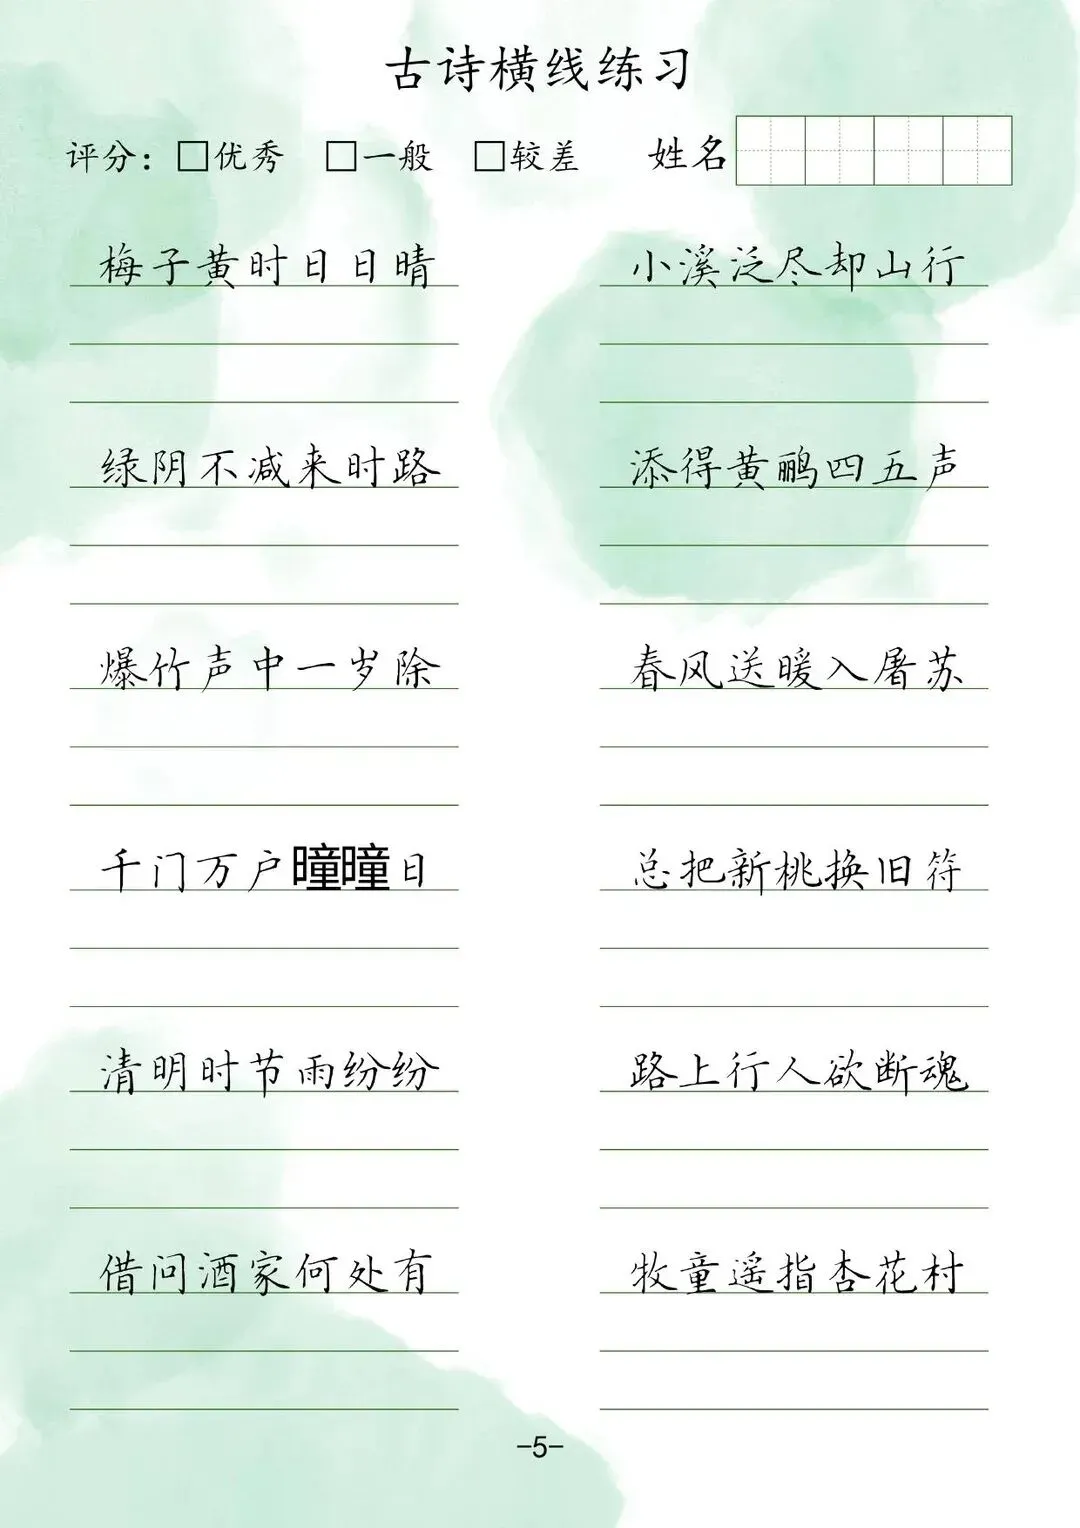 古诗横线练习
评分：□优秀 □一般 □较差 姓名
梅子黄时日日晴 小溪泛尽却山行
绿阴不减来时路 添得黄鹂四五声
爆竹声中一岁除 春风送暖入屠苏
千门万户曈曈日 总把新桃换旧符
清明时节雨纷纷 路上行人欲断魂
借问酒家何处有 牧童遥指杏花村
-5-